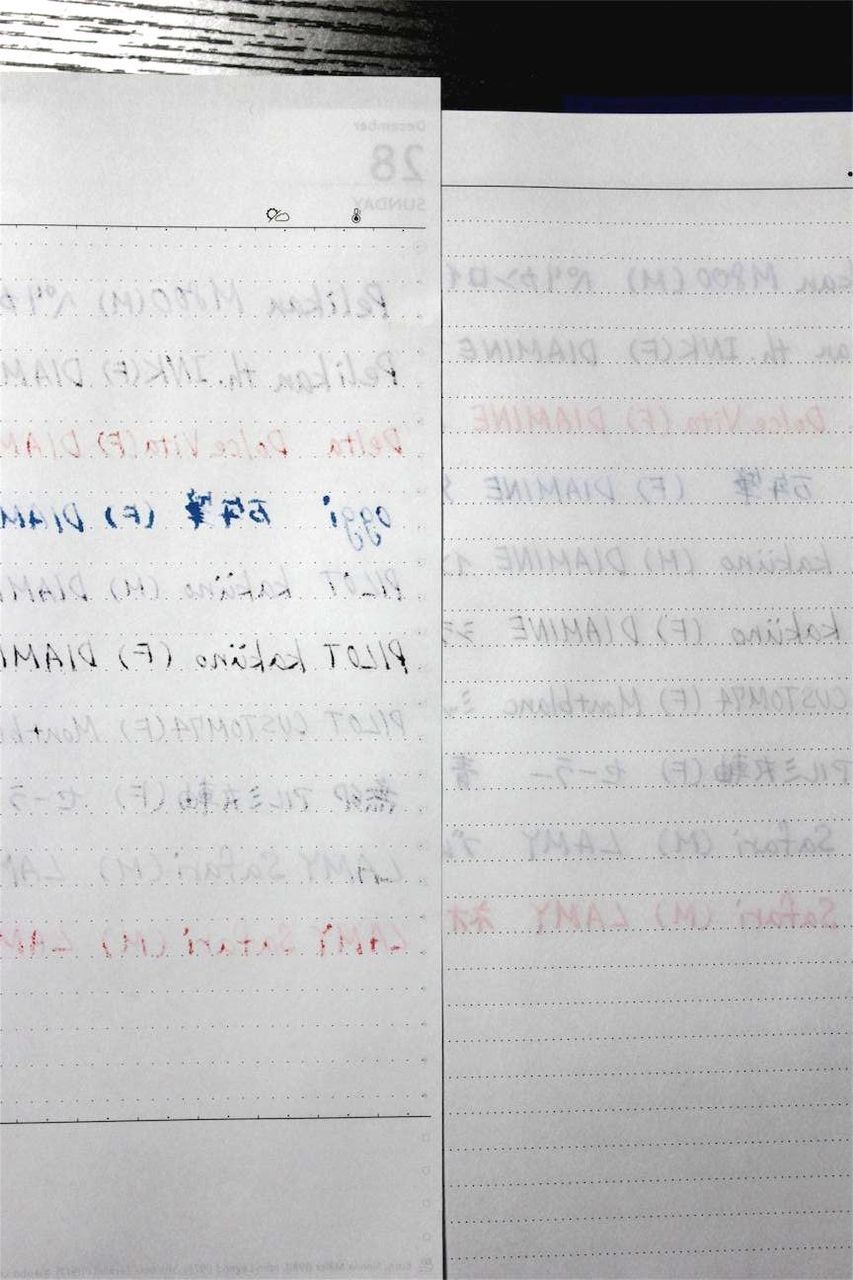 December
28
SUNDAY
Pelikan M800(M) ペリカ
Pelikan th.INK(F) DIAM
Delta Dolce Vita(F) DIAM
oggi 万年筆 (F) DIAM
PILOT kaküno (M) DIAM
PILOT kaküno (F) DIAMI
PILOT CUSTOM74(F) Montb
無印 アルミ丸軸(F) セーラ
LAMY Safari (M) LAM
LAMY Safari (M) LAM
kan M800(M) ペリカン ロイ
an th.INK(F) DIAMINE
Dolce Vita (F) DIAMINE
万年筆 (F) DIAMINE
kaküno (M) DIAMINE
kaküno (F) DIAMINE
CUSTOM74 (F) Montblanc ミ
アルミ丸軸(F) セーラー 青
Safari (M) LAMY ブル
Safari (M) LAMY